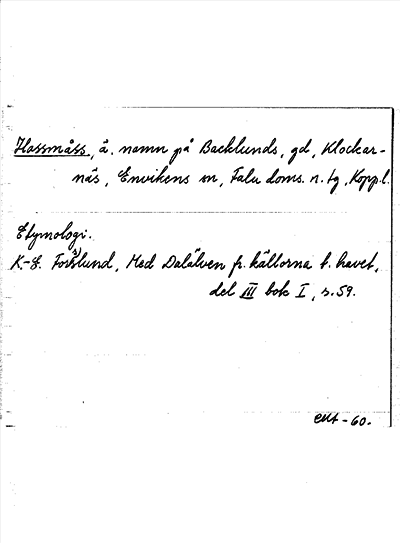 Hassmåss, ä. namn på Backlunds, gd, Klockar-
näs, Envikens sn, Falu doms. n. tg, Kopp.l.
Etymologi.
K.-E. Forslund, Med Dalälven fr. källorna t. havet,
del III bok I, s. 59.
-60.